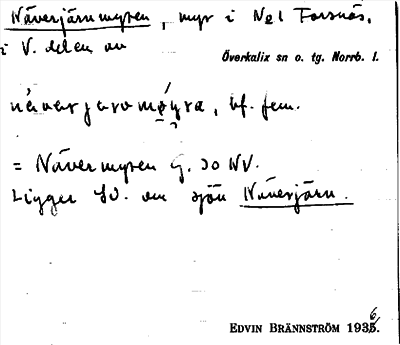 Näverjärnmyren, myr i Nel Forsnäs,
i V. delen av
Överkalix sn o. tg. Norrb. l.
bf. fem.
= Nävermyren G. 30 NV.
Ligger SV. om sjön Näverjärn.
EDVIN BRÄNNSTRÖM 1936.